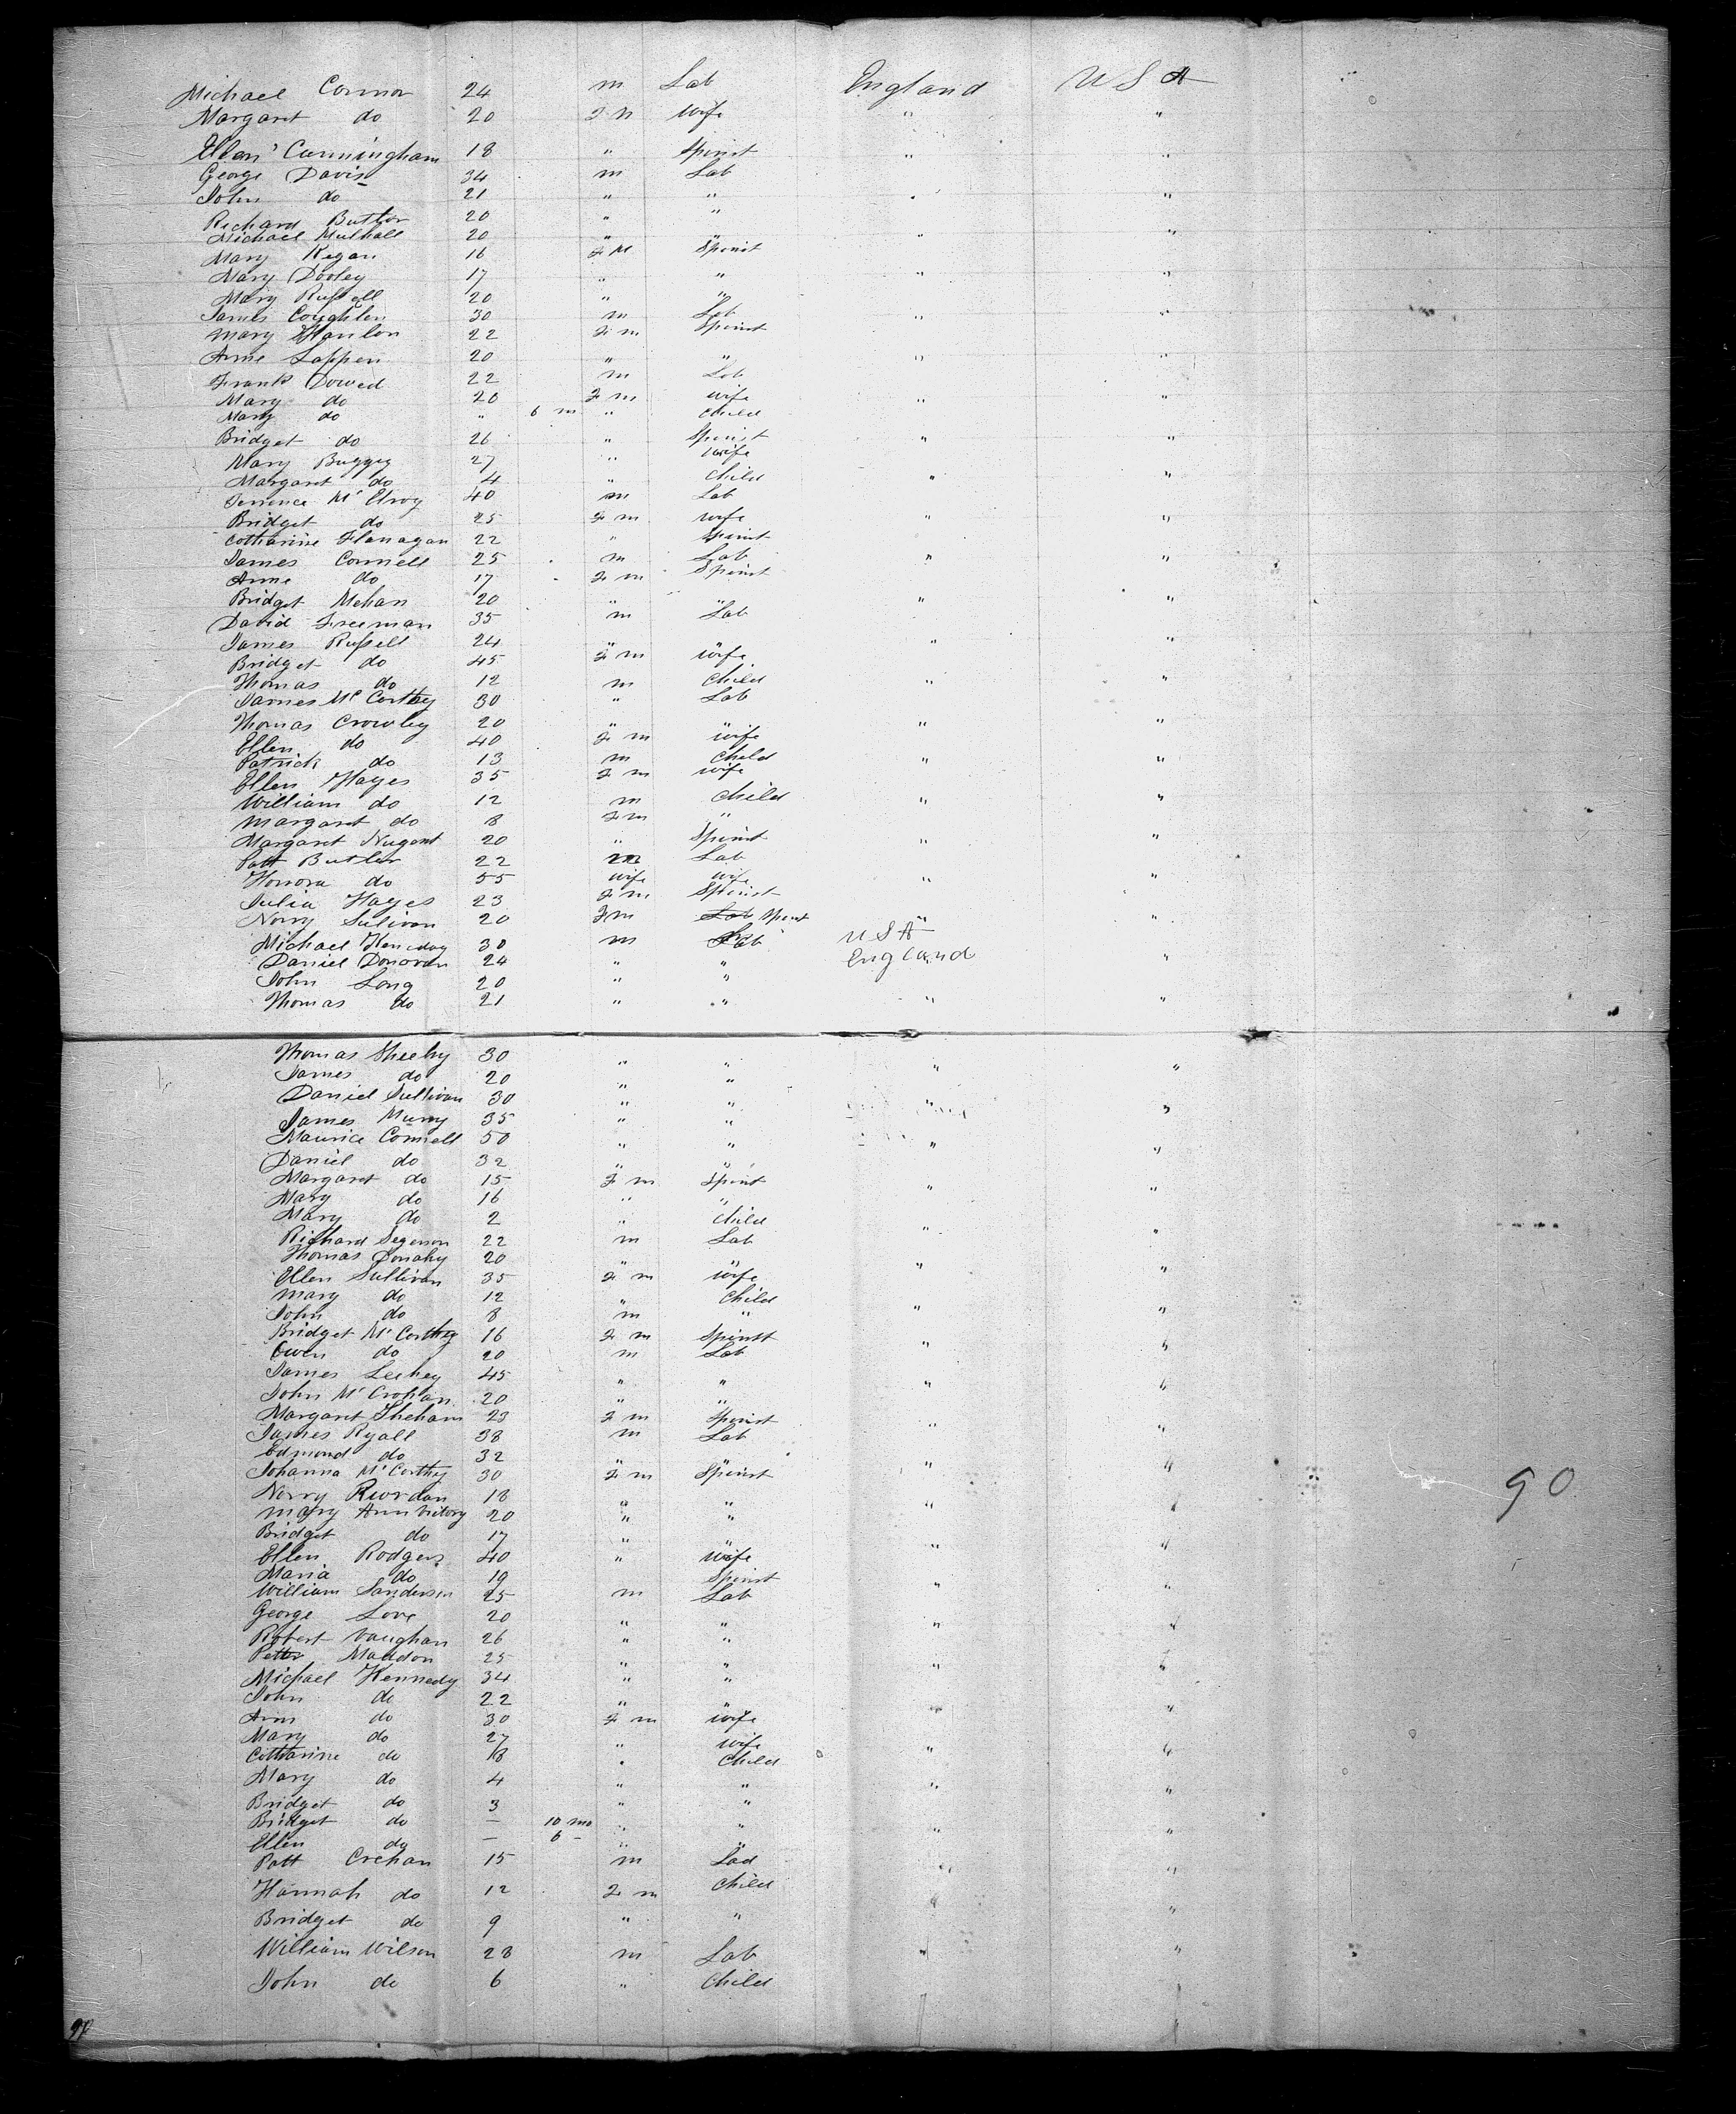 Michael Connor 24 m Lab England U S A
Margaret do 20 F m wife " "
Ellen Cunningham 18 " Spinst " "
George Davis 34 m Lab
John do 21 " " " "
Richard Butler 20 " "
Michael Mulhall 20 " " " "
Mary Kegan 16 F M Spinst
Mary Dooley 17 " " " "
Mary Russell 20 " "
James Coughlen 30 m Lab " "
Mary Hanlon 22 F m Spinst
Anne Lappen 20 " " " "
Frank Dowed 22 m Lab
Mary do 20 F m wife " "
Mary do " 6 m " child
Bridget do 26 " Spinst " "
Mary Buggy 27 " wife
Margaret do 4 " child " "
Terrence Mc Elroy 40 m Lab
Bridget do 25 F m wife " "
Catharine Flanagan 22 " Spinst
James Connell 25 m Lab " "
Anne do 17 F m Spinst
Bridget Mehan 20 " " " "
David Freeman 35 m Lab
James Russell 24 " " " "
Bridget do 45 F m wife
Thomas do 12 m child " "
James Mc Corthy 30 " Lab
Thomas Crowley 20 " " " "
Ellen do 40 F m wife
Patrick do 13 m child " "
Ellen Hayes 35 F m wife
William do 12 m child " "
Margaret do 8 F m "
Margaret Nugent 20 " Spinst " "
Patt Butler 22 m Lab
Honora do 55 wife wife " "
Julia Hayes 23 F m Spinst
Norry Sulivan 20 F m Lab Spinst " "
Michael Kenedy 30 m Lab U S A
Daniel Donovan 24 " " England "
John Long 20 " "
Thomas do 21 " " " "
Thomas Sheehy 30 " " " "
James do 20 " "
Daniel Sullivan 30 " " " "
James Murry 35 " "
Maurice Connell 50 " " " "
Daniel do 32 " "
Margaret do 15 F m Spinst " "
Mary do 16 " "
Mary do 2 " child " "
Richard Segerson 22 m Lab
Thomas Donahy 20 " " " "
Ellen Sullivan 35 F m wife
Mary do 12 " child " "
John do 8 m "
Bridget Mc Corthy 16 F m Spinst " "
Owen do 20 m Lab
James Leehey 45 " " " "
John Mc Crohan 20 " "
Margaret Sheham 23 F m Spinst " "
James Ryall 38 m Lab
Edmond do 32 " " " "
Johanna Mc Corthy 30 F m Spinst
Norry Riordan 18 " " " "
Mary Ann 20 " "
Bridget do 17 " " " "
Ellen Rodgers 40 " wife
Maria do 19 Spinst " "
William Sanderson 25 m Lab
George Love 20 " " " "
Robert Vaughan 26 " "
Petter Maddon 25 " " " "
Michael Kennedy 34 " "
John do 22 " " " "
Ann do 30 F m wife
Mary do 27 " wife " "
Cattharine do 18 " child
Mary do 4 " " " "
Bridget do 3 " "
Bridget do — 10 mo " " " "
Ellen do — 6 - " "
Patt Crehan 15 m Lad " "
Hannah do 12 F m child
Bridget do 9 " " " "
William Wilson 28 m Lab " "
John do 6 " child
90